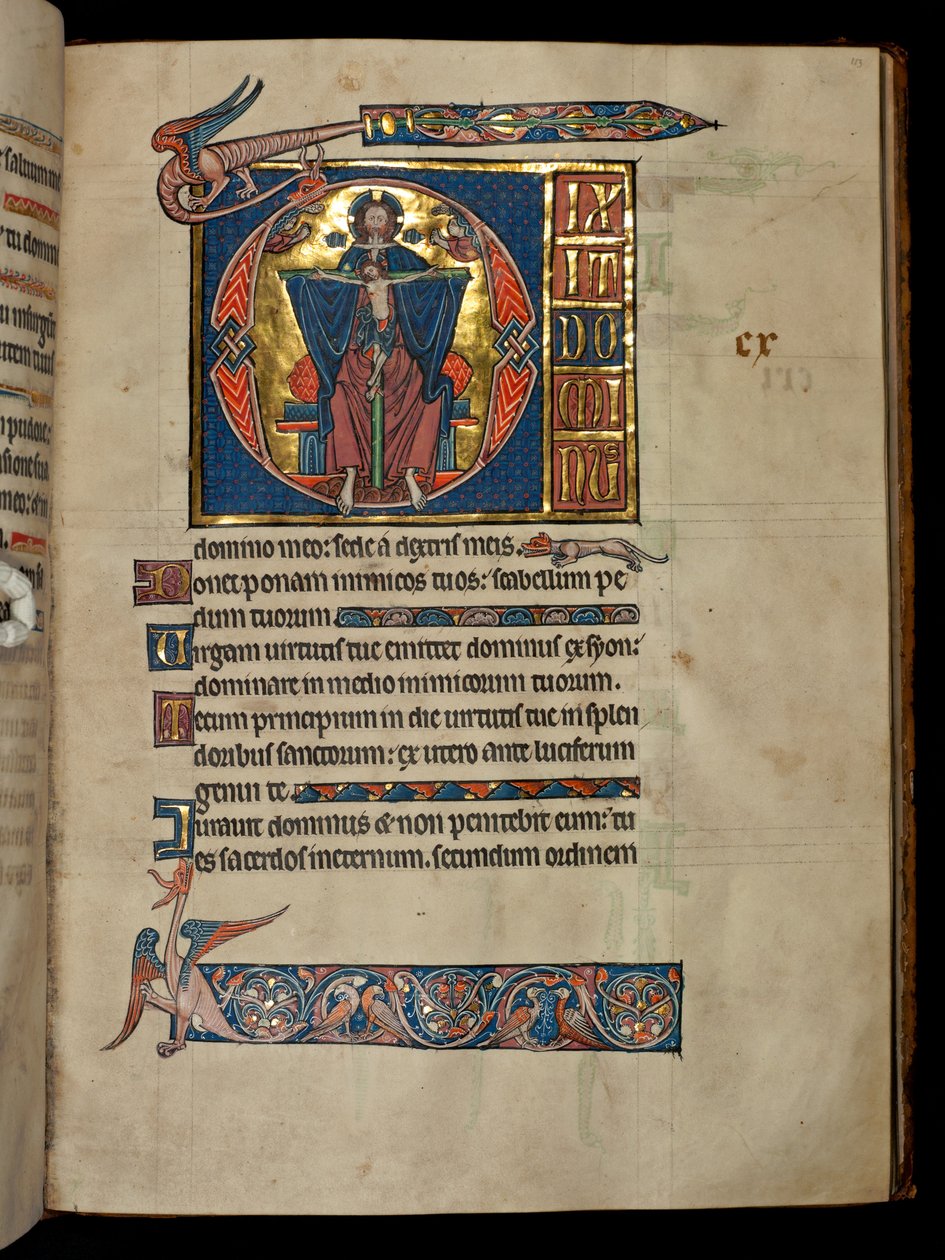 113
DIXIT DOMINUS
cx
domino meo: sede a dextris meis.
Donec ponam inimicos tuos: scabellum pe
dum tuorum
Uirgam uirtutis tue emittet dominus ex syon:
dominare in medio inimicorum tuorum.
Tecum principium in die uirtutis tue in splen
doribus sanctorum: ex utero ante luciferum
genui te
Jurauit dominus & non penitebit eum: tu
es sacerdos ineternum. secundum ordinem